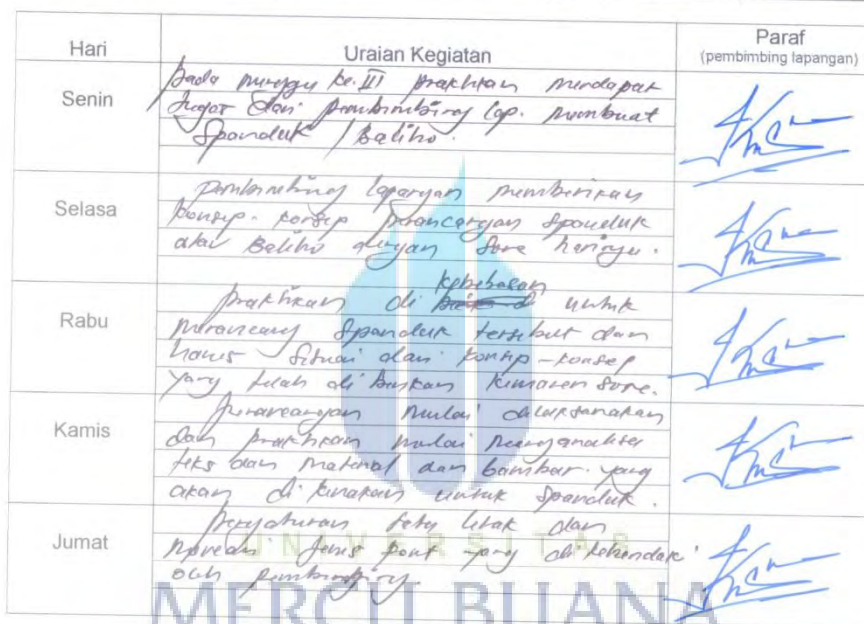 Hari Uraian Kegiatan Paraf
(pembimbing lapangan)
Senin
pada minggu ke. III praktikan mendapat
tugas dari pembimbing lap. membuat
Spanduk / Baliho.
Selasa
pembimbing lapangan memberikan
konsep-konsep perancangan Spanduk
atau Baliho dengan Sore harinya.
Rabu
kebebasan
praktikan di untuk
merancang Spanduk tersebut dan
harus Sesuai dari konsep-konsep
yang telah di kemaren Sore.
Kamis
Perancangan mulai dilaksanakan
dan praktikan mulai menganalisa
teks dan material dan Gambar yang
akan di untuk Spanduk.
Jumat
pengaturan tata letak dan
jenis font yang di kehendaki
oleh pembimbing.
UNIVERSITAS
MERCU BUANA